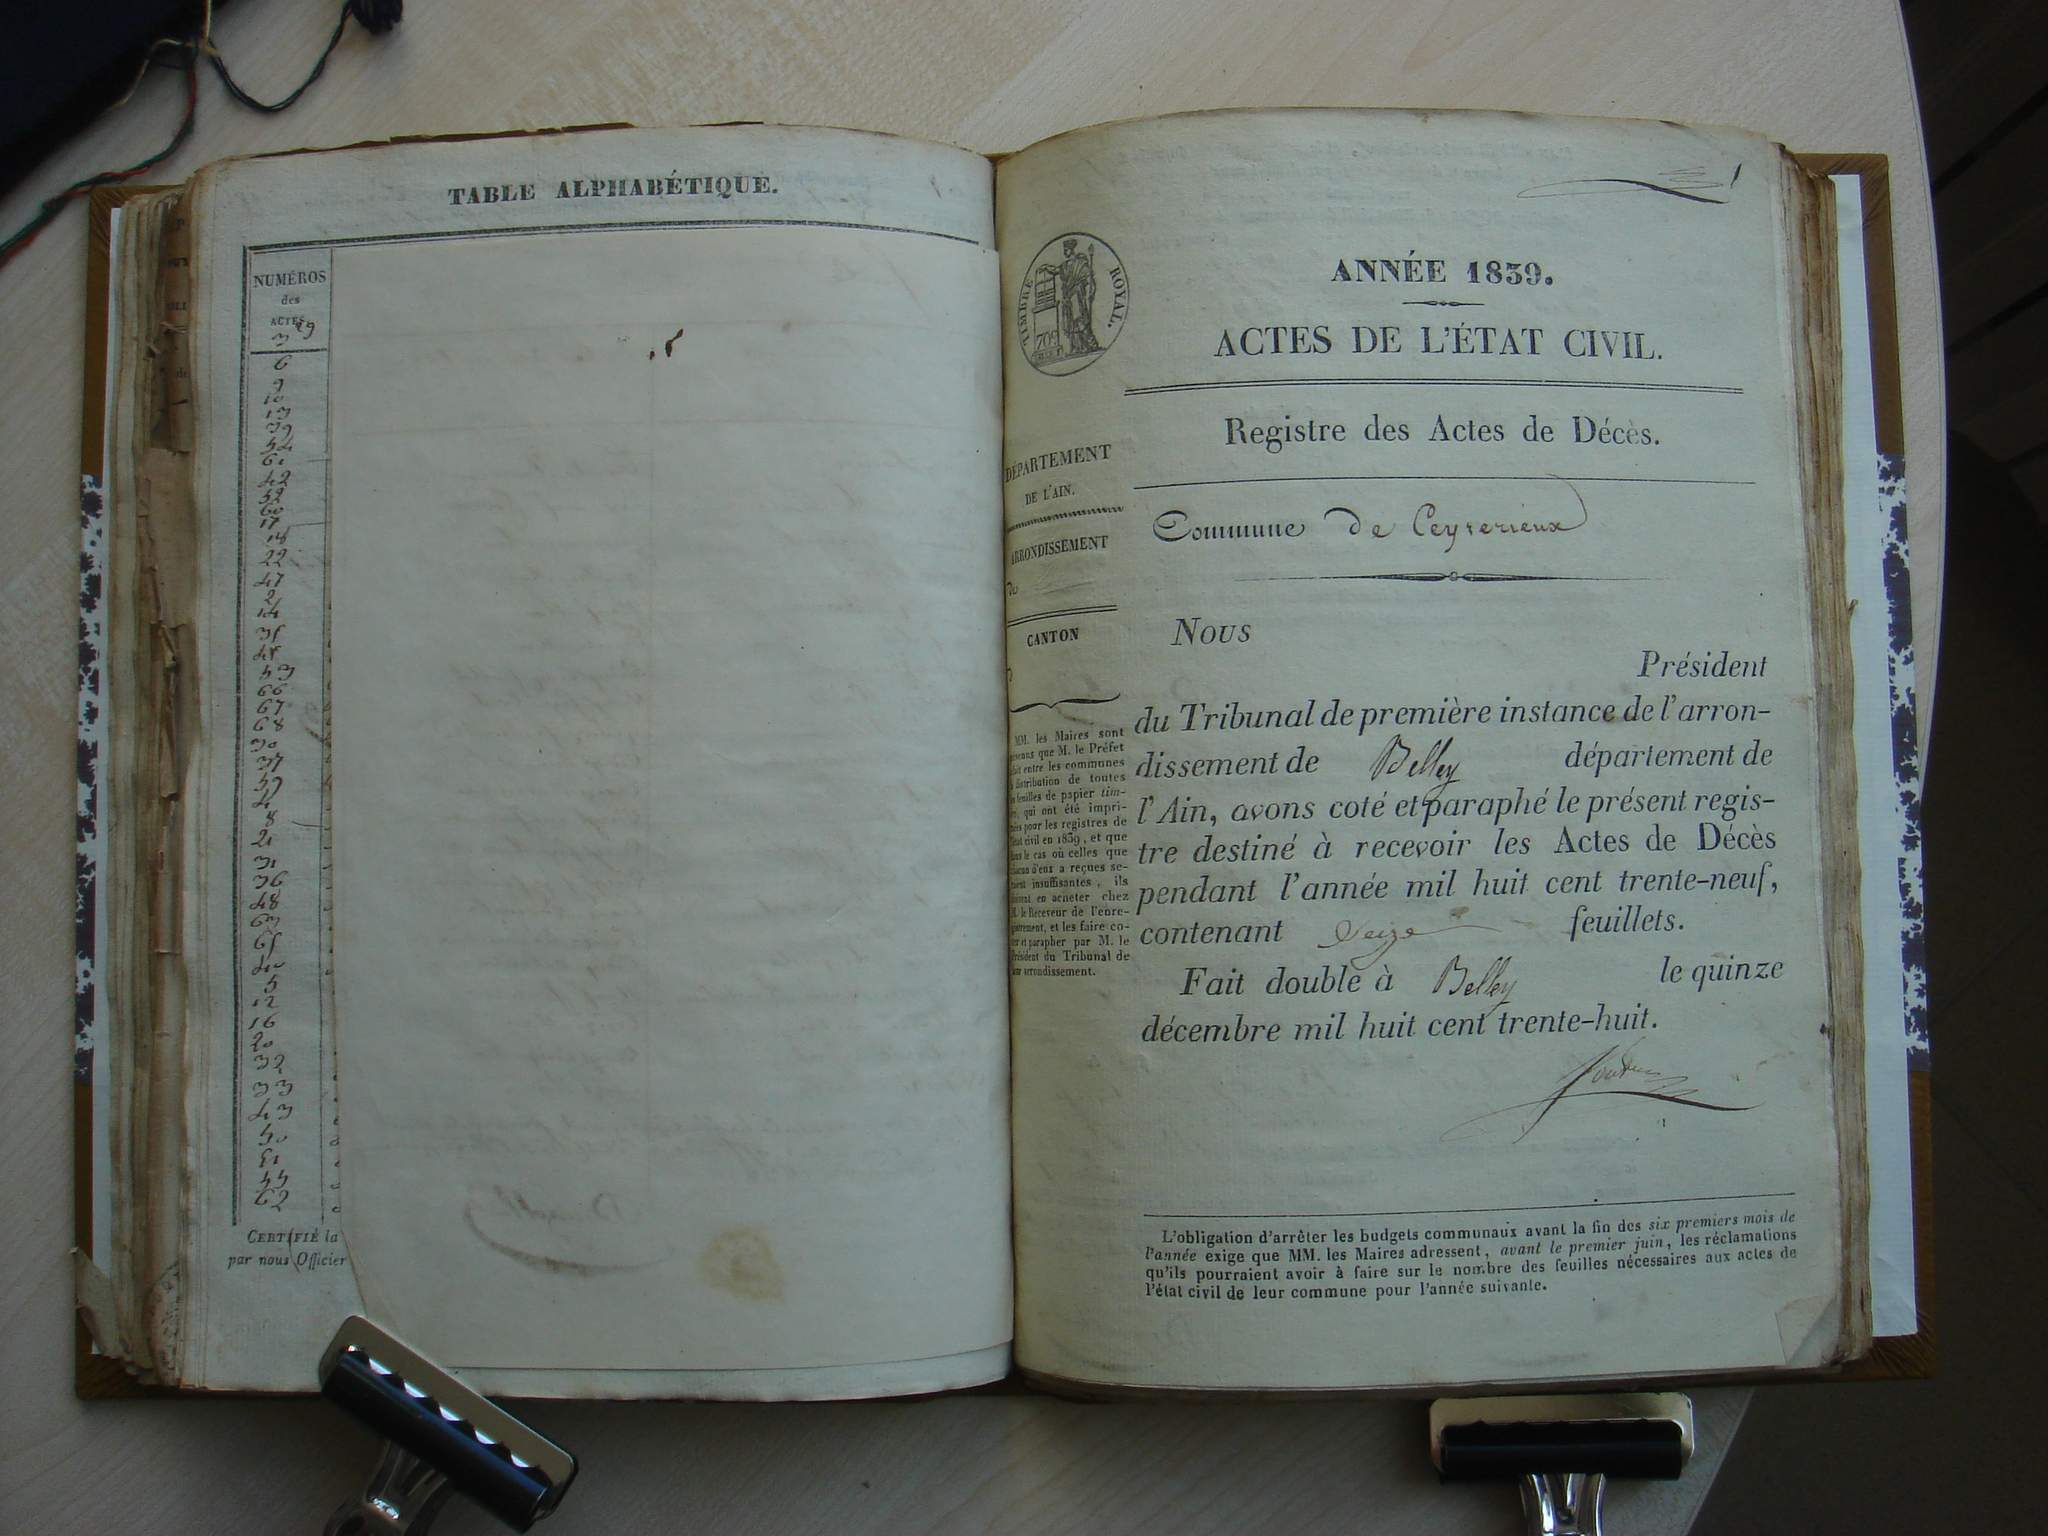 TABLE ALPHABÉTIQUE.
NUMÉROS
des
ACTES
6
9
10
13
39
54
61
42
52
60
17
18
22
47
2
14
35
45
53
66
67
68
30
37
59
4
8
21
31
36
48
63
65
40
5
12
16
20
32
33
43
50
51
55
62
CERTIFIÉ la
par nous Officier
1
TIMBRE ROYAL.
70c
ANNÉE 1839.
ACTES DE L'ÉTAT CIVIL.
Registre des Actes de Décès.
DÉPARTEMENT
DE L'AIN.
ARRONDISSEMENT
de
CANTON
Commune de Ceyzerieux
Nous
Président
du Tribunal de première instance de l'arron-
dissement de Belley département de
l'Ain, avons coté et paraphé le présent regis-
tre destiné à recevoir les Actes de Décès
pendant l'année mil huit cent trente-neuf,
contenant Seize feuillets.
Fait double à Belley le quinze
décembre mil huit cent trente-huit.
MM. les Maires sont
que M. le Préfet
fait entre les communes
distribution de toutes
feuilles de papier tim-
qui ont été impri-
pour les registres de
l'état civil en 1839, et que
le cas où celles que
chacun d'eux a reçues se-
insuffisantes, ils
en acheter chez
M. le Receveur de l'enre-
gistrement, et les faire co-
ter et parapher par M. le
Président du Tribunal de
arrondissement.
L'obligation d'arrêter les budgets communaux avant la fin des six premiers mois de
l'année exige que MM. les Maires adressent, avant le premier juin, les réclamations
qu'ils pourraient avoir à faire sur le nombre des feuilles nécessaires aux actes de
l'état civil de leur commune pour l'année suivante.